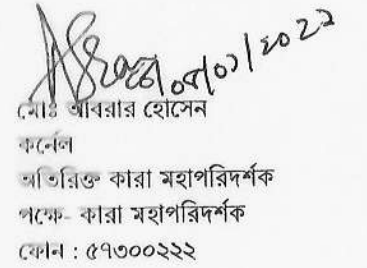 ০৮/০১/২০২২
মোঃ আবরার হোসেন
কর্নেল
অতিরিক্ত কারা মহাপরিদর্শক
পক্ষে- কারা মহাপরিদর্শক
ফোন : ৫৭৩০০২২২